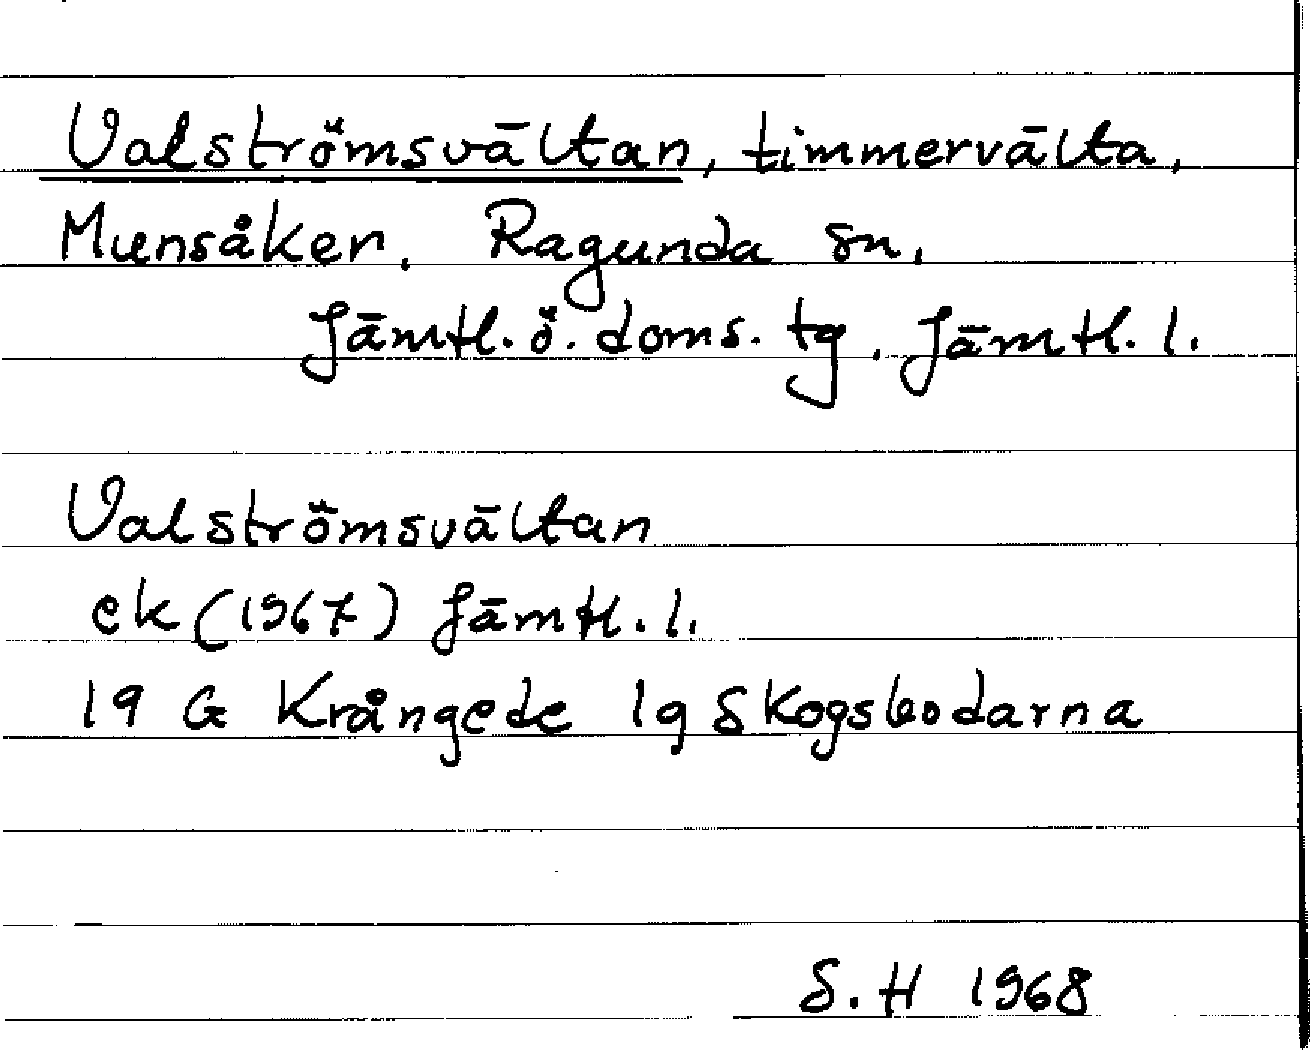 Valströmsvältan, timmervälta,
Munsåker. Ragunda sn,
Jämtl. ö. doms. tg. Jämtl. l.
Valströmsvältan
ek (1967) Jämtl. l.
19 G Krångede 1g Skogsbodarna
S. H 1968